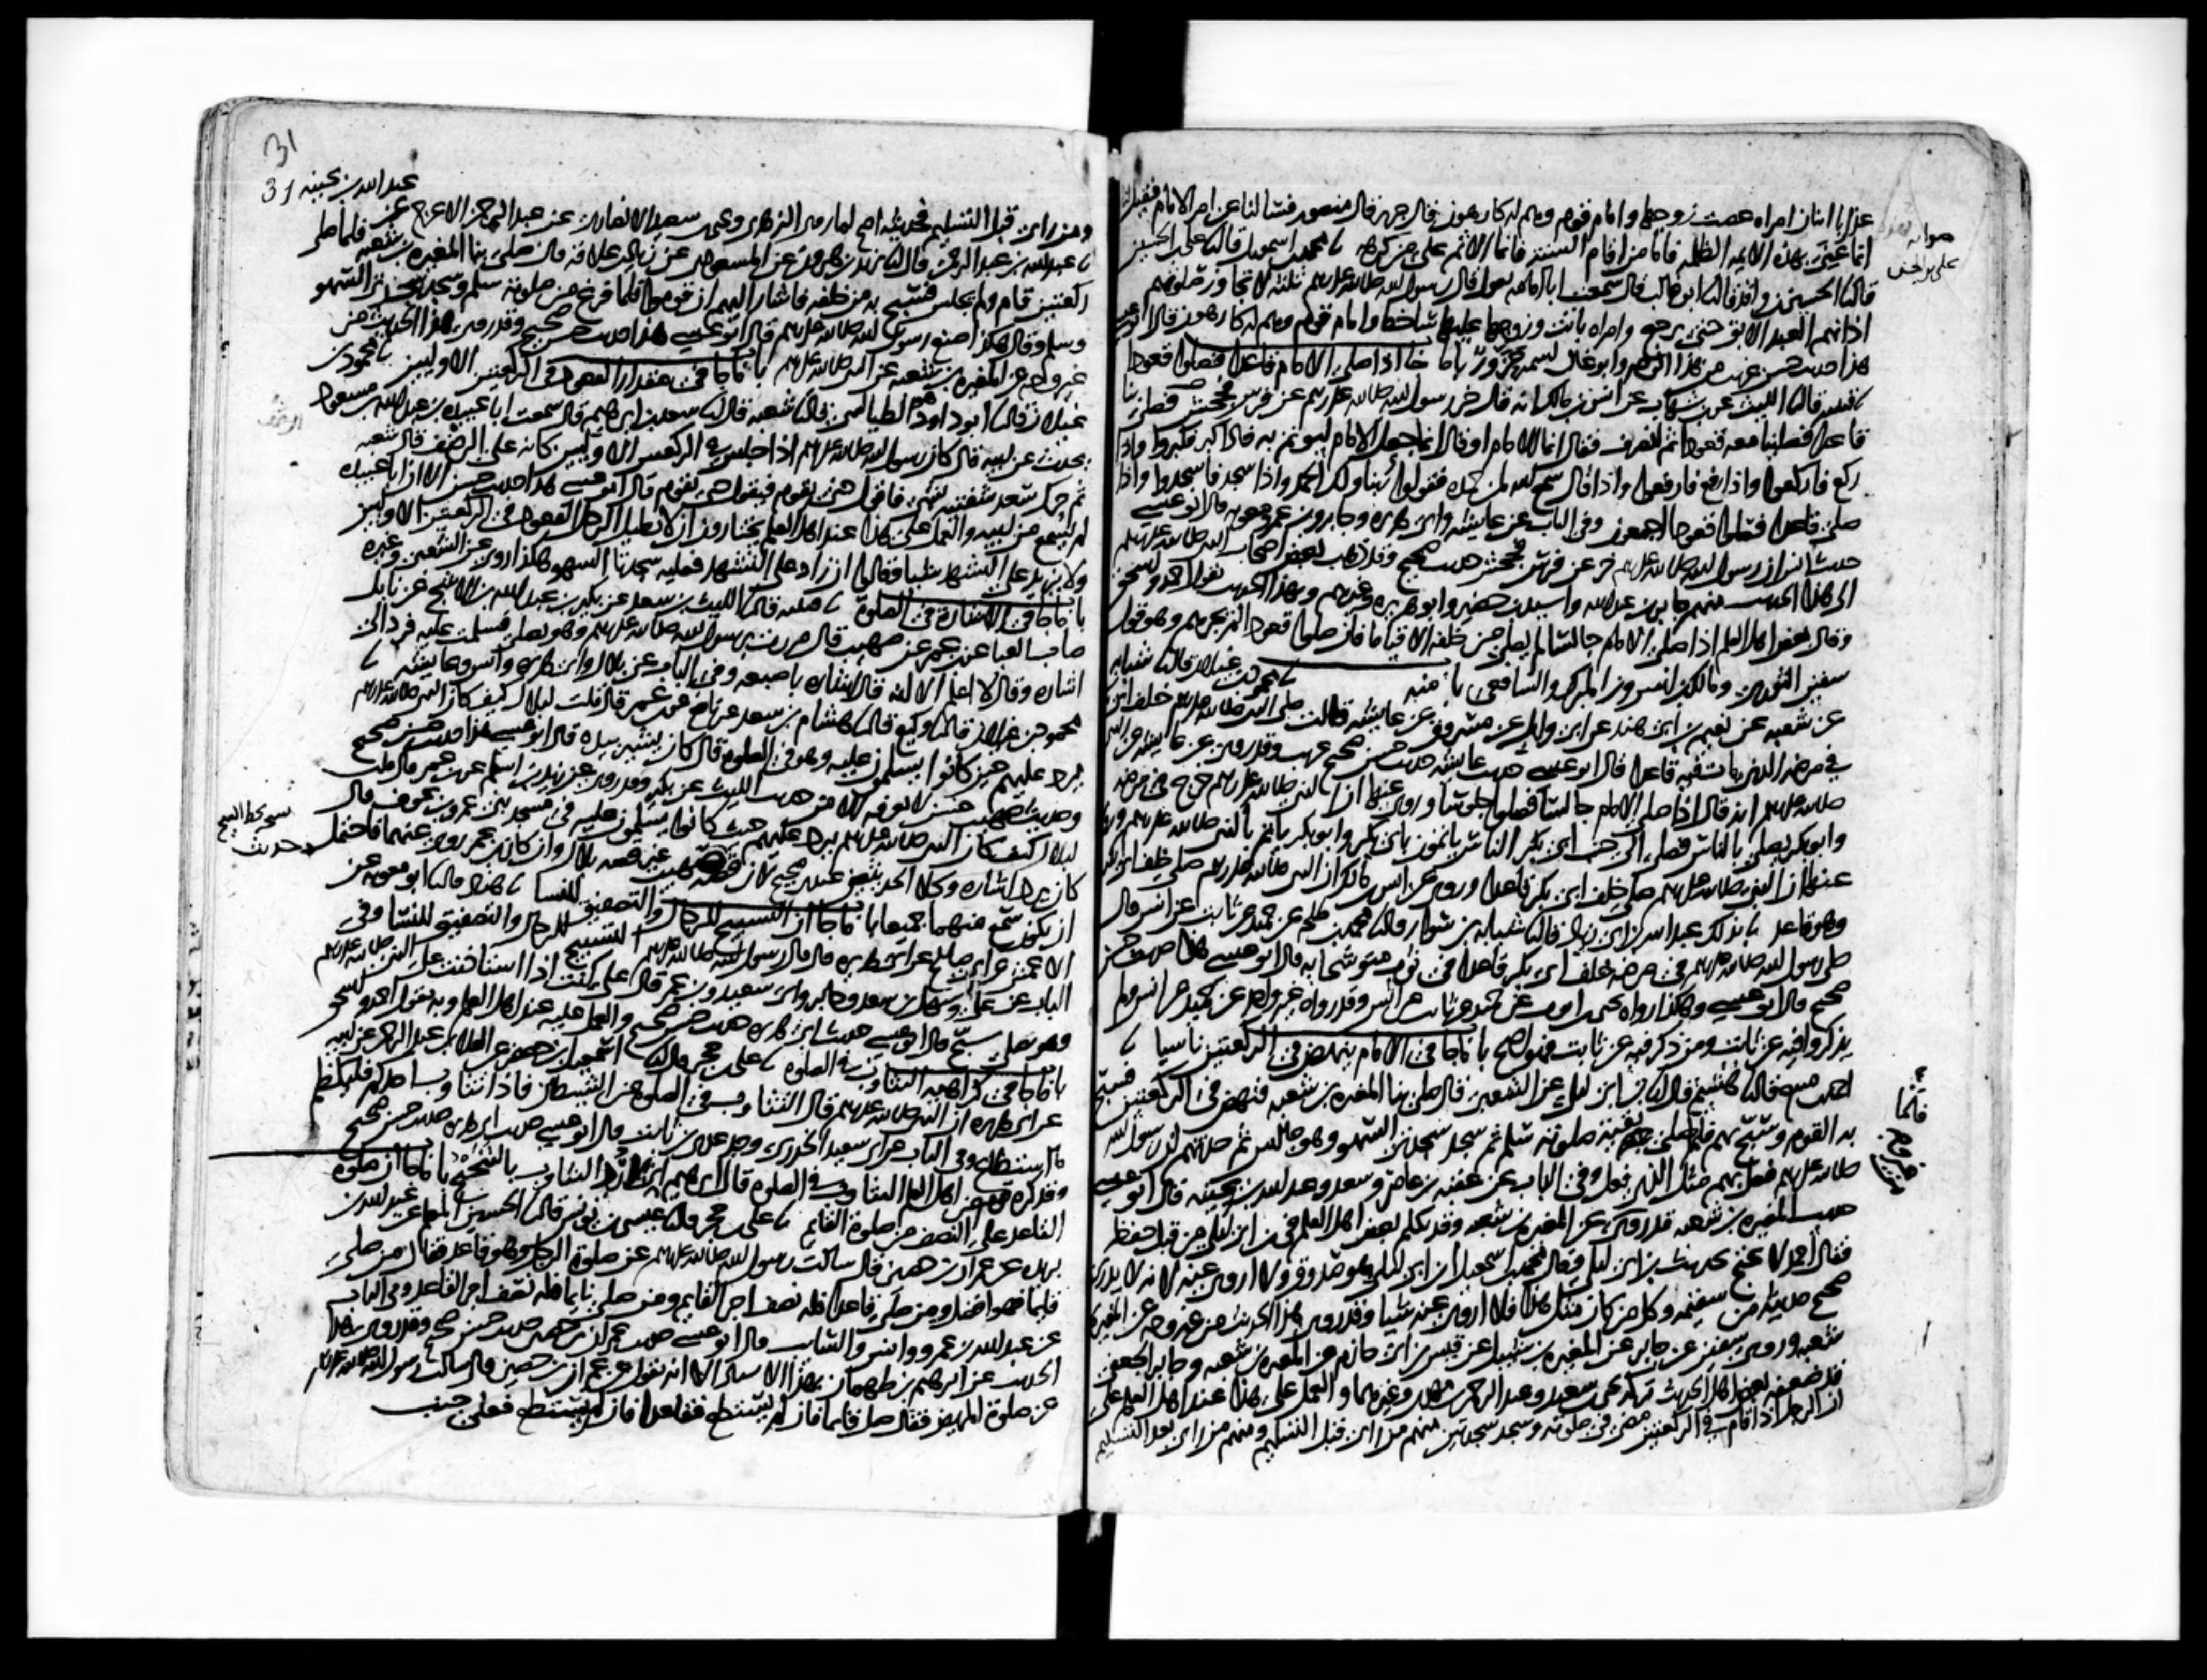 عذابا اثنان امراه عصت زوجها وامام قوم وهم له كارهون قال جرير قال منصور فسالنا عن امر الامام فقيل لنا
انما عنى بهذا الايمة الظلمة فاما من اقام السنة فانما الاثم على من كرهه محمد بن اسمعيل قال علي بن الحسن
قال الحسين بن واقد قال ابو غالب قال سمعت ابا امامة يقول قال رسول الله صلى الله عليه وسلم ثلثة لا تجاوز صلوتهم
اذانهم العبد الابق حتى يرجع وامراه باتت وزوجها عليها ساخط وامام قوم وهم له كارهون قال ابو عيسى
هذا حديث حسن غريب من هذا الوجه وابو غالب اسمه حزور باب ما جا اذا صلى الامام قاعدا فصلوا قعودا
قتيبة قال الليث عن بن شهاب عن انس بن مالك انه قال خر رسول الله صلى الله عليه وسلم عن فرس فجحش فصلى بنا
قاعدا فصلينا معه قعودا ثم انصرف فقال انما الامام او قال انما جعل الامام ليوتم به فاذا كبر فكبروا واذا
ركع فاركعوا واذا رفع فارفعوا واذا قال سمع الله لمن حمده فقولوا ربنا ولك الحمد واذا سجد فاسجدوا واذا
صلى قاعدا فصلوا قعودا اجمعون وفي الباب عن عايشة وابي هريرة وجابر وبن عمر ومعوية قال ابو عيسى
حديث انس ان رسول الله صلى الله عليه وسلم خر عن فرس فجحش حديث صحيح وقد ذهب بعض اصحاب النبي صلى الله عليه وسلم
الى هذا الحديث منهم جابر بن عبد الله واسيد بن حضير وابو هريرة وغيرهم وبهذا الحديث يقول احمد واسحق
وقال بعض اهل العلم اذا صلى الامام جالسا لم يصل من خلفه الا قياما فان صلوا قعودا لم يجزهم وهو قول
سفين الثوري ومالك بن انس وبن المبرك والشافعي باب منه محمود بن غيلان قال شبابة
عن شعبة عن نعيم بن ابي هند عن ابي وايل عن مسروق عن عايشة قالت صلى النبي صلى الله عليه وسلم خلف ابي بكر
في مرضه الذي مات فيه قاعدا قال ابو عيسى حديث عايشة حديث حسن صحيح غريب وقد روي عن عايشة عن النبي
صلى الله عليه وسلم انه قال اذا صلى الامام جالسا فصلوا جلوسا وروي عنها ان النبي صلى الله عليه وسلم خرج في مرضه
وابو بكر يصلي بالناس فصلى الى جنب ابي بكر الناس ياتمون بابي بكر وابو بكر ياتم بالنبي صلى الله عليه وسلم وروي
عنها ان النبي صلى الله عليه وسلم صلى خلف ابي بكر قاعدا وروي عن انس بن مالك ان النبي صلى الله عليه وسلم صلى خلف ابي بكر
وهو قاعد بذلك عبد الله بن ابي زياد قال شبابة بن سوار قال محمد بن طلحة عن حميد عن ثابت عن انس قال
صلى رسول الله صلى الله عليه وسلم في مرضه خلف ابي بكر قاعدا في ثوب متوشحا به قال ابو عيسى هذا حديث حسن
صحيح قال ابو عيسى وهكذا رواه يحيى بن ايوب عن حميد عن ثابت عن انس وقد رواه غير واحد عن حميد عن انس ولم
يذكروا فيه عن ثابت ومن ذكر فيه عن ثابت فهو اصح باب ما جا في الامام ينهض في الركعتين ناسيا
احمد بن منيع قال هشيم قال بن ابي ليلى عن الشعبي قال صلى بنا المغيرة بن شعبة فنهض في الركعتين فسبح
به القوم وسبح بهم فلما صلى بقية صلوته سلم ثم سجد سجدتي السهو وهو جالس ثم حدثهم ان رسول الله
صلى الله عليه وسلم فعل بهم مثل الذي فعل وفي الباب عن عقبة بن عامر وسعد وعبد الله بن بحينة قال ابو عيسى
حديث المغيرة بن شعبة قد روي عن المغيرة بن شعبة وقد تكلم بعض اهل العلم في بن ابي ليلى من قبل حفظه
فقال احمد لا يحتج بحديث بن ابي ليلى وقال محمد بن اسمعيل ابن ابي ليلى هو صدوق ولا اروي عنه لانه لا يدري
صحيح حديثه من سقيمه وكل من كان مثل هذا فلا اروي عنه شيا وقد روي هذا الحديث من غير وجه عن المغيرة بن
شعبة وروى سفين عن جابر عن المغيرة بن شبيل عن قيس بن ابي حازم عن المغيرة بن شعبة وجابر الجعفي
قد ضعفه بعض اهل الحديث تركه يحيى بن سعيد وعبد الرحمن بن مهدي وغيرهما والعمل على هذا عند اهل العلم على
ان الرجل اذا قام في الركعتين مضى في صلوته وسجد سجدتين منهم من راى قبل التسليم ومنهم من راى بعد التسليم
صوابه
علي بن الحسن
قايما
31
عبد الله بن بحينة 31
ومن راى قبل التسليم فحديثه اصح لما روى الزهري ويحيى بن سعيد الانصاري عن عبد الرحمن الاعرج عن
عبد الله بن عبد الرحمن قال يزيد بن هرون عن المسعودي عن زياد بن علاقة قال صلى بنا المغيرة بن شعبة فلما صلى
ركعتين قام ولم يجلس فسبح به من خلفه فاشار اليهم ان قوموا فلما فرغ من صلوته سلم وسجد سجدتي السهو
وسلم وقال هكذا صنع رسول الله صلى الله عليه وسلم قال ابو عيسى هذا حديث حسن صحيح وقد روي هذا الحديث من
غير وجه عن المغيرة بن شعبة عن النبي صلى الله عليه وسلم باب ما جا في مقدار القعود في الركعتين الاوليين محمود بن
غيلان قال ابو داود هو الطيالسي قال شعبة قال سعد بن ابرهيم قال سمعت ابا عبيدة بن عبد الله بن مسعود
يحدث عن ابيه قال كان رسول الله صلى الله عليه وسلم اذا جلس في الركعتين الاوليين كانه على الرضف قال شعبة
ثم حرك سعد شفتيه بشي فاقول حتى يقوم فيقول حتى يقوم قال ابو عيسى هذا حديث حسن الا ان ابا عبيدة
لم يسمع من ابيه والعمل على هذا عند اهل العلم يختارون ان لا يطيل الرجل القعود في الركعتين الاوليين
ولا يزيد على التشهد شيا وقالوا ان زاد على التشهد فعليه سجدتا السهو هكذا روي عن الشعبي وغيره
باب ما جا في الاشارة في الصلوة قتيبة قال الليث بن سعد عن بكير بن عبد الله بن الاشج عن نابل
صاحب العبا عن بن عمر عن صهيب قال مررت برسول الله صلى الله عليه وسلم وهو يصلي فسلمت عليه فرد الي
اشارة وقال لا اعلم الا انه قال اشارة باصبعه وفي الباب عن بلال وابي هريرة وانس وعايشة
محمود بن غيلان قال وكيع قال هشام بن سعد عن نافع عن بن عمر قال قلت لبلال كيف كان النبي صلى الله عليه وسلم
يرد عليهم حين كانوا يسلمون عليه وهو في الصلوة قال كان يشير بيده قال ابو عيسى هذا حديث حسن صحيح
وحديث صهيب حسن لا نعرفه الا من حديث الليث عن بكير وقد روي عن زيد بن اسلم عن بن عمر قال قلت
لبلال كيف كان النبي صلى الله عليه وسلم يرد عليهم حيث كانوا يسلمون عليه في مسجد بني عمرو بن عوف قال
كان يرد اشارة وكلا الحديثين عندي صحيح لان قصة حديث صهيب غير قصة بلال وان كان بن عمر روى عنهما فاحتمل
ان يكون سمع منهما جميعا باب ما جا ان التسبيح للرجال والتصفيق للنسا هناد قال ابو معوية عن
الاعمش عن ابي صالح عن ابي هريرة قال قال رسول الله صلى الله عليه وسلم التسبيح للرجال والتصفيق للنسا وفي
الباب عن علي وسهل بن سعد وجابر وابي سعيد وبن عمر قال علي كنت اذا استاذنت على النبي صلى الله عليه وسلم
وهو يصلي سبح قال ابو عيسى حديث ابي هريرة حديث حسن صحيح والعمل عليه عند اهل العلم وبه يقول احمد واسحق
باب ما جا في كراهية التثاوب في الصلوة علي بن حجر قال اسمعيل بن جعفر عن العلا بن عبد الرحمن عن ابيه
عن ابي هريرة ان النبي صلى الله عليه وسلم قال التثاوب في الصلوة من الشيطان فاذا تثاوب احدكم فليكظم
ما استطاع وفي الباب عن ابي سعيد الخدري وجد عدي بن ثابت قال ابو عيسى حديث ابي هريرة حديث حسن صحيح
وقد كره قوم من اهل العلم التثاوب في الصلوة قال ابرهيم اني لارد التثاوب بالتنحنح باب ما جا ان صلوة
القاعد على النصف من صلوة القايم علي بن حجر قال عيسى بن يونس قال الحسين المعلم عن عبد الله بن
بريدة عن عمران بن حصين قال سالت رسول الله صلى الله عليه وسلم عن صلوة الرجل وهو قاعد فقال من صلى
قايما فهو افضل ومن صلى قاعدا فله نصف اجر القايم ومن صلى نايما فله نصف اجر القاعد وفي الباب
عن عبد الله بن عمرو وانس والسايب قال ابو عيسى حديث عمران بن حصين حديث حسن صحيح وقد روي هذا
الحديث عن ابرهيم بن طهمان بهذا الاسناد الا انه يقول عن عمران بن حصين قال سالت رسول الله صلى الله عليه وسلم
عن صلوة المريض فقال صل قايما فان لم تستطع فقاعدا فان لم تستطع فعلى جنب
حديث